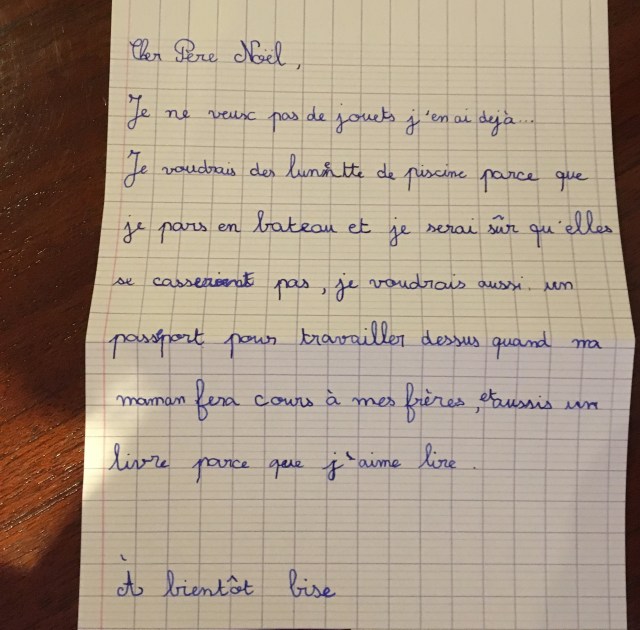 Cher Père Noël,
Je ne veux pas de jouets j'en ai dejà...
Je voudrais des lunette de piscine parce que
je pars en bateau et je serai sûr qu'elles
se casseraient pas, je voudrais aussi un
passport pour travailler dessus quand ma
maman fera cours à mes frères, et aussis un
livre parce que j'aime lire.
À bientôt bise